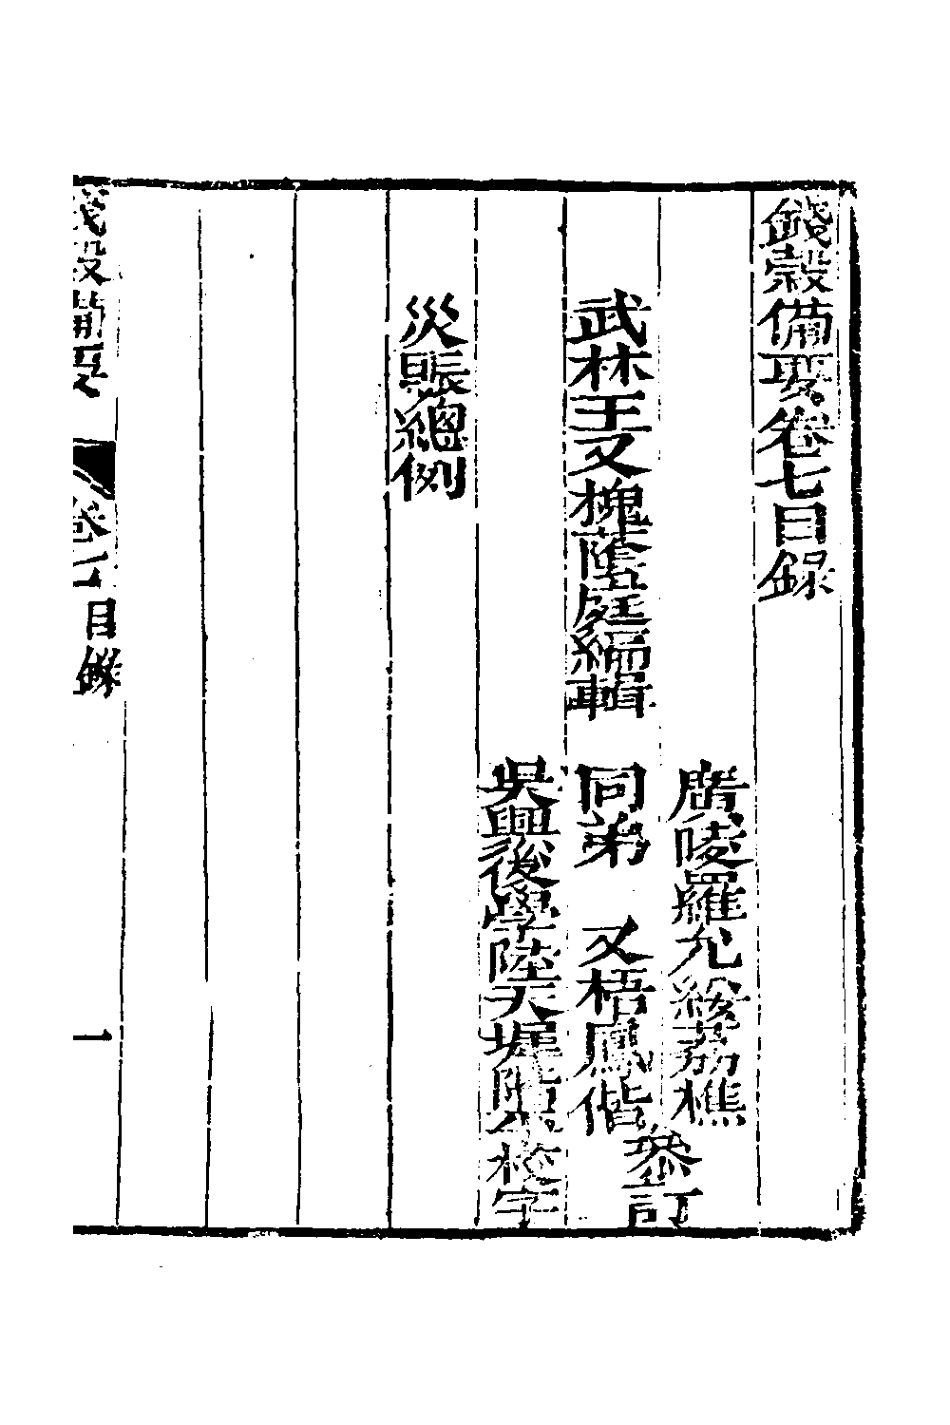 錢穀備要卷七目錄
廣陵羅允綏荔樵
武林王又槐蔭庭編輯 同弟 又梧鳳偕
參訂
吳興後學陸天墀 校字
災賑總例
錢穀備要 卷七目錄 一